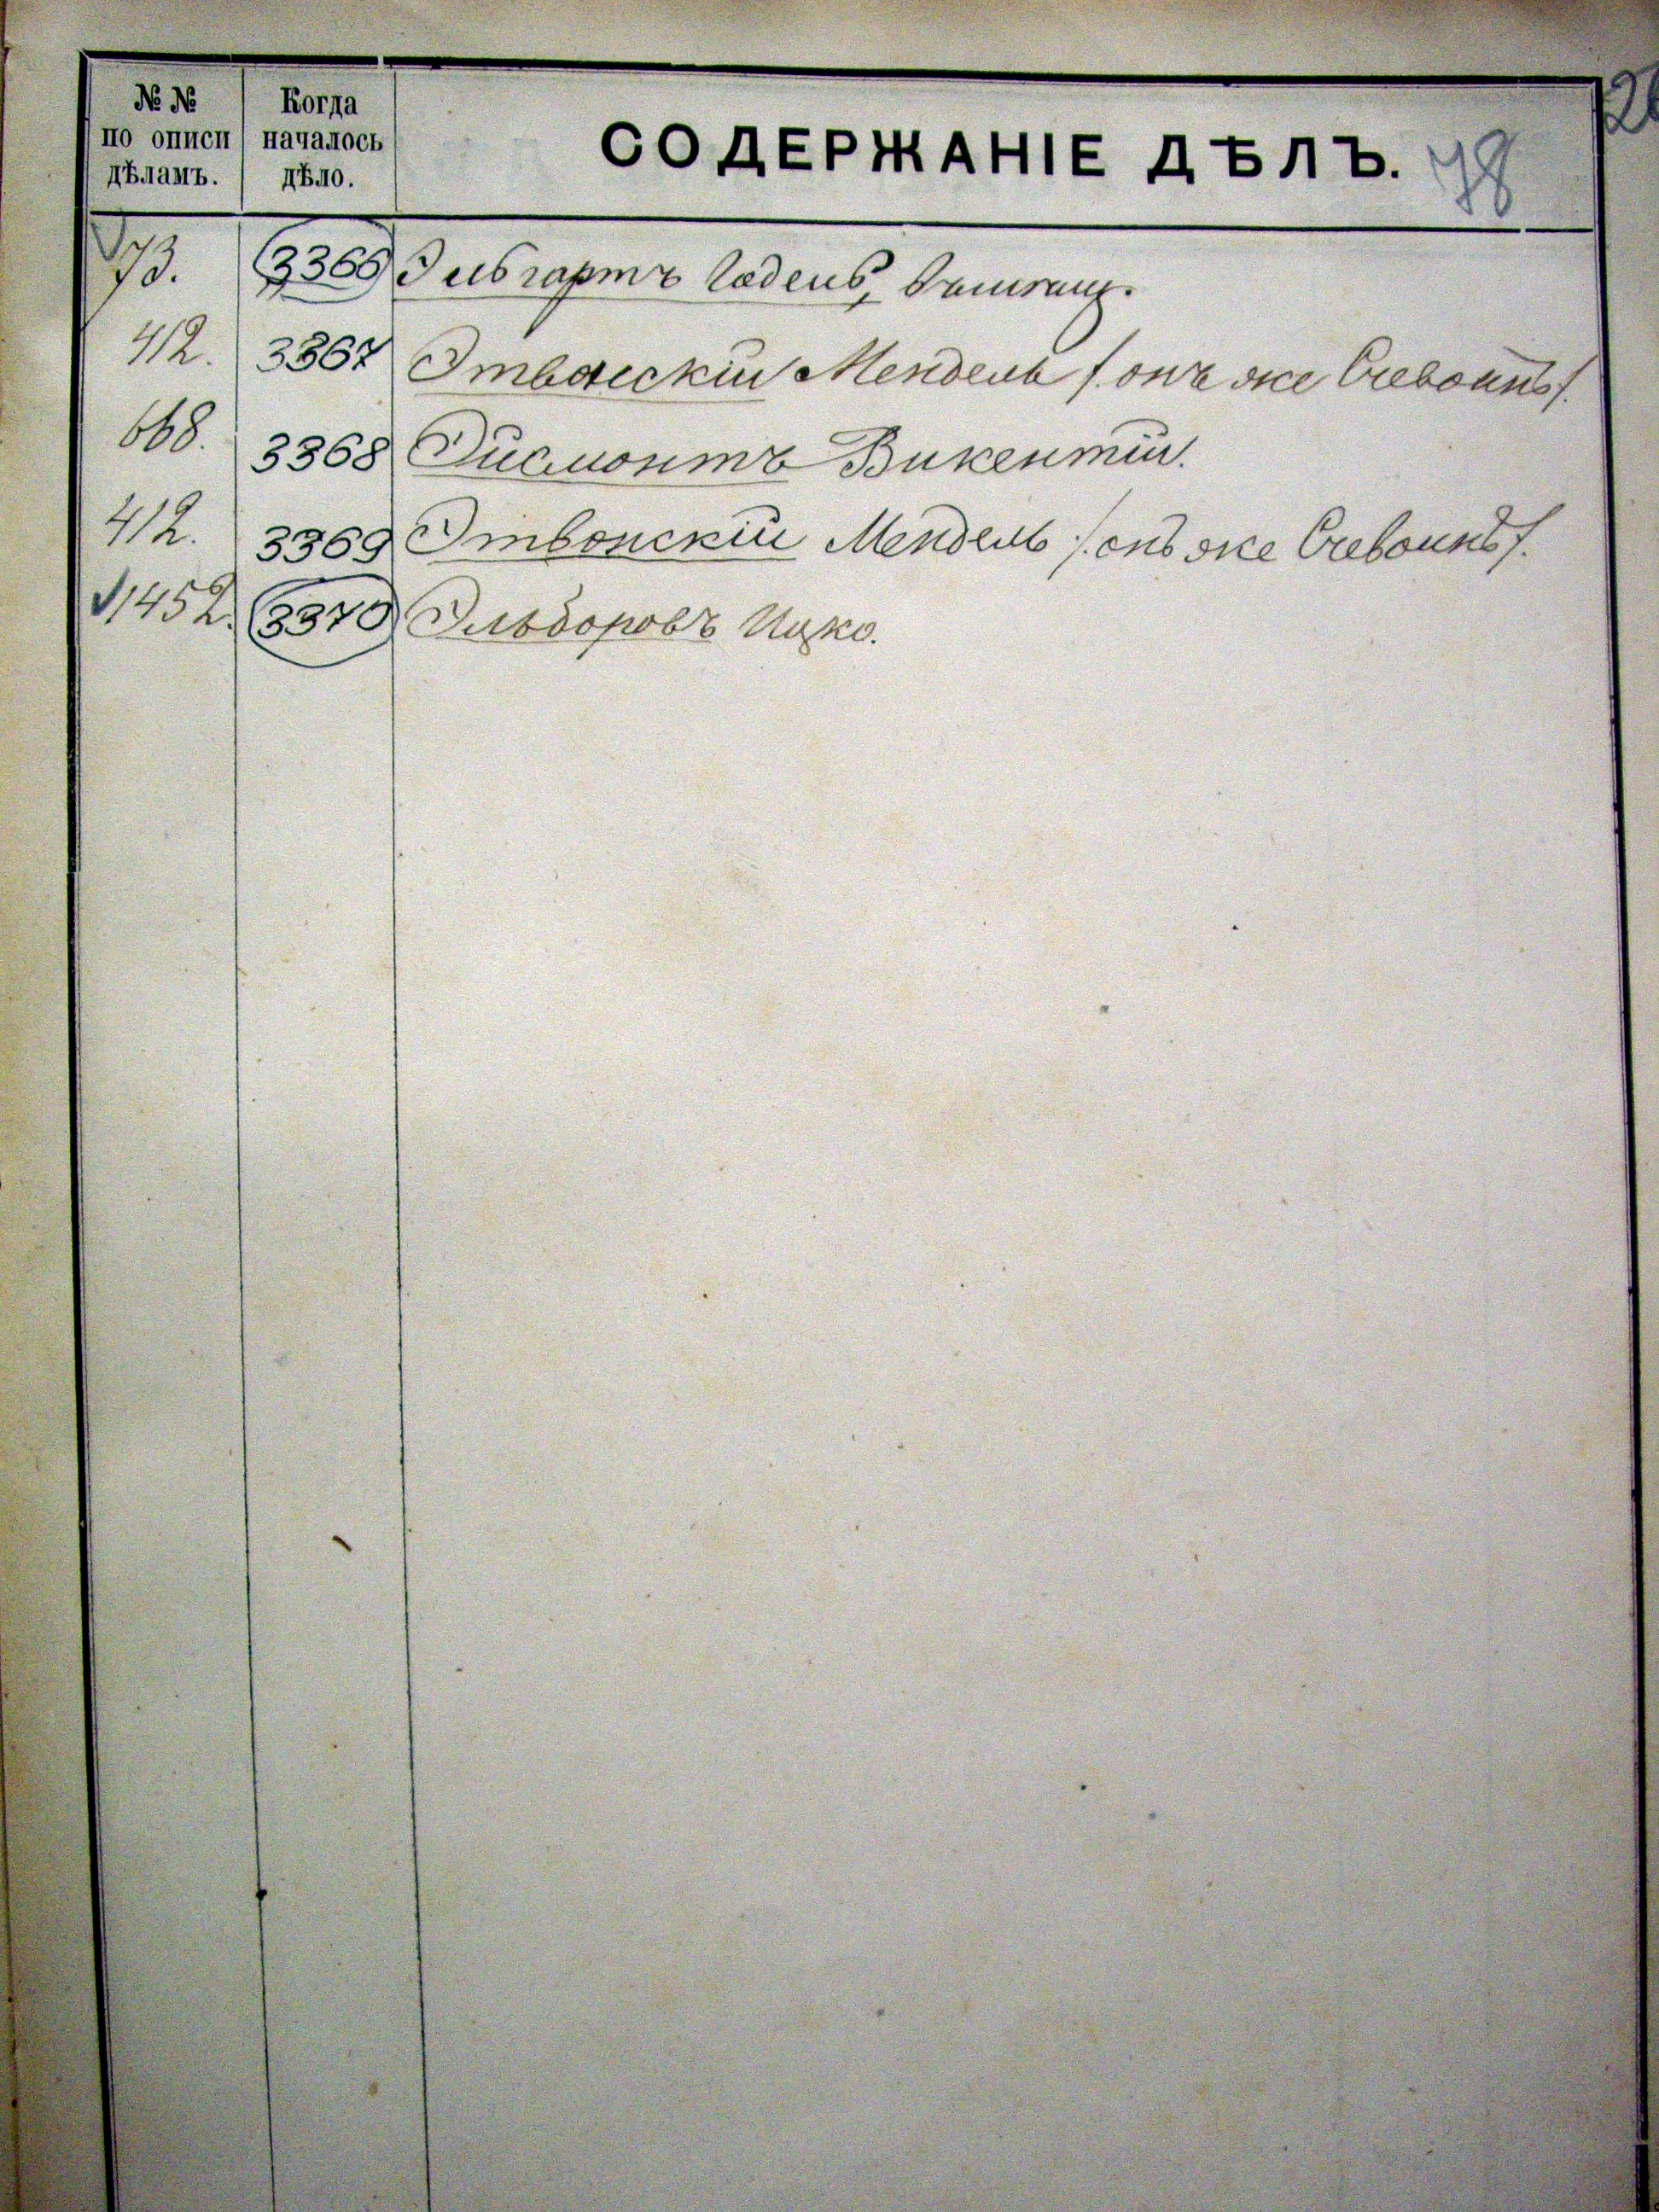 № № по описи дѣламъ.
Когда началось дѣло.
СОДЕРЖАНІЕ ДѢЛЪ.
78
73. 3366
412. 3367 Этвонскій Мендель /. онъ же
668. 3368 Эйсмонтъ Викентій.
412. 3369 Этвонскій Мендель /. онъ же
1452. 3370 Эльборовъ Ицко.